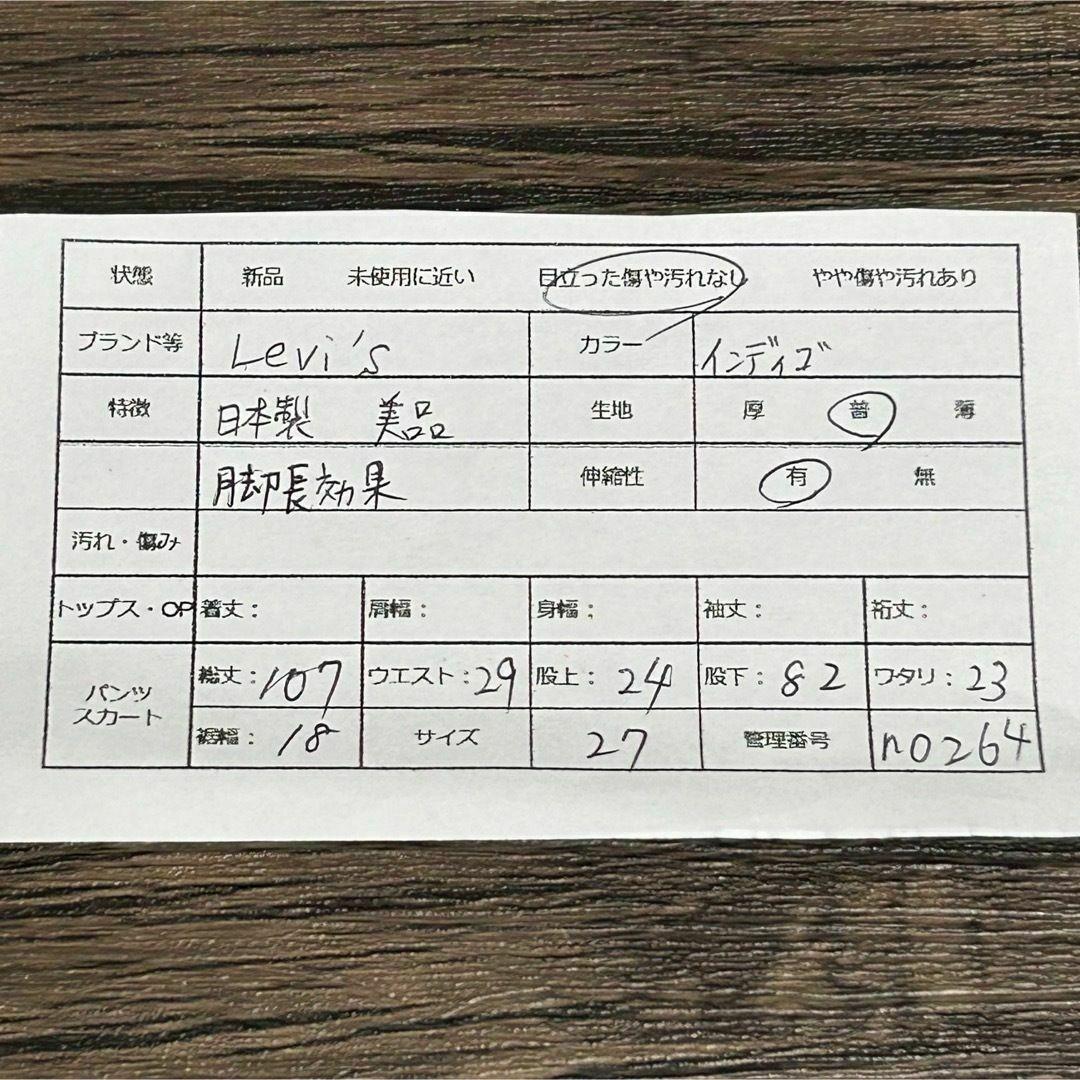 状態 新品 未使用に近い 目立った傷や汚れなし やや傷や汚れあり
ブランド等 Levi's カラー インディゴ
特徴 日本製 美品 生地 厚 普 薄
脚長効果 伸縮性 有 無
汚れ・傷み
トップス・OP 着丈： 肩幅： 身幅： 袖丈： 裄丈：
パンツ スカート
総丈：107 ウエスト：29 股上：24 股下：82 ワタリ：23
裾幅：18 サイズ 27 管理番号 no264